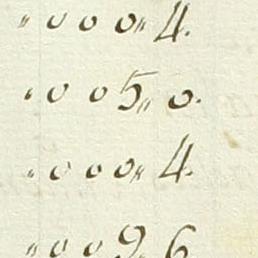 "000"4.
"005"0.
"000"4.
"009"6